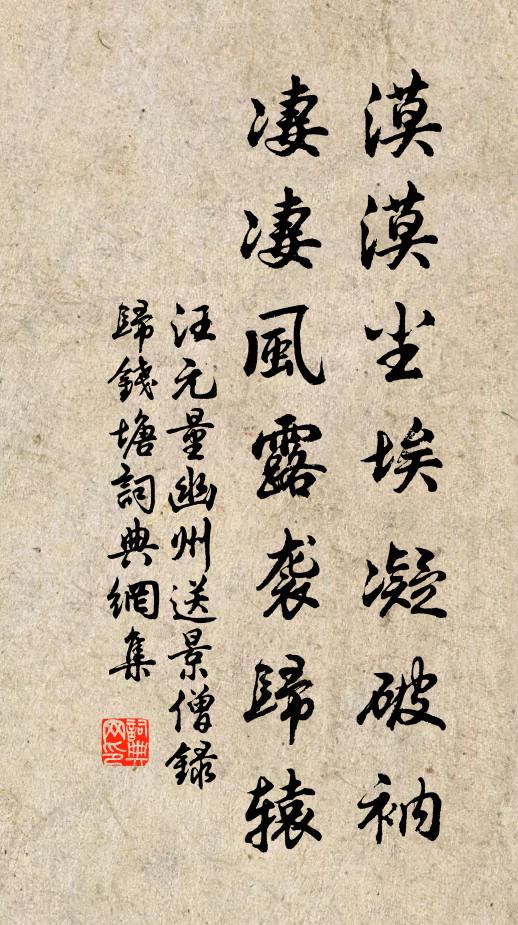 漠漠尘埃凝破衲
凄凄風露袭歸辕
汪元量幽州送景僧録
歸錢塘詞典網集
詞典網印